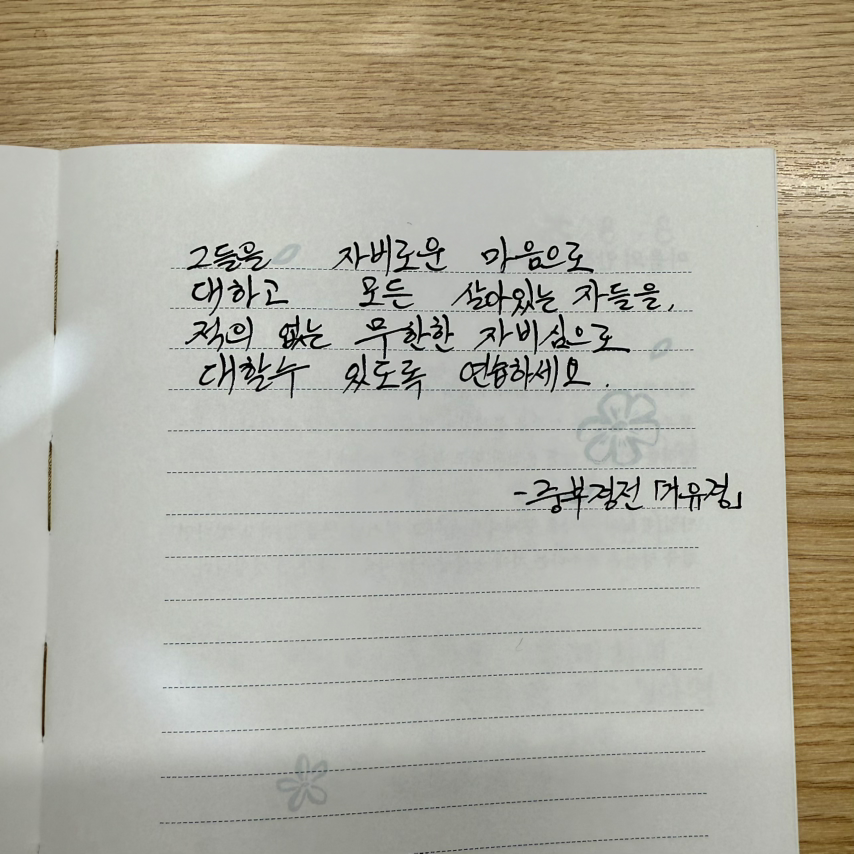 그들을 자비로운 마음으로
대하고 모든 살아있는 자들을,
적의 없는 무한한 자비심으로
대할수 있도록 연습하세요.
-중부경전 「거유경」